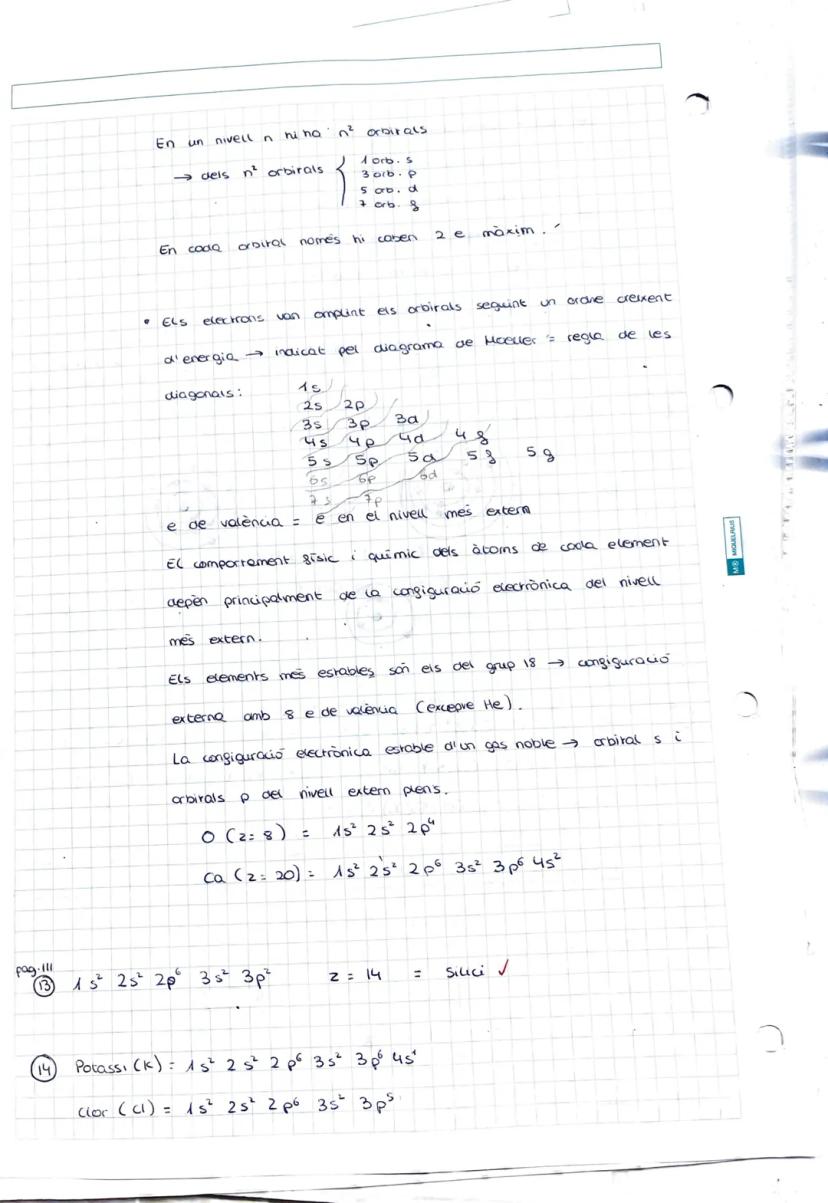 En un nivell n hi ha n² orbitals
→ dels n² orbitals { 1 orb. s
3 orb. p
5 orb. d
7 orb. f
En cada orbital només hi caben 2 e⁻ màxim.
• Els electrons van omplint els orbitals seguint un ordre creixent
d'energia → indicat pel diagrama de Moeller = regla de les
diagonals:
1s
2s 2p
3s 3p 3d
4s 4p 4d 4f
5s 5p 5d 5f 5g
6s 6p 6d
7s 7p
e⁻ de valència = e⁻ en el nivell més extern
El comportament físic i químic dels àtoms de cada element
depèn principalment de la configuració electrònica del nivell
més extern.
Els elements més estables són els del grup 18 → configuració
externa amb 8 e⁻ de valència (excepte He).
La configuració electrònica estable d'un gas noble → orbital s i
orbitals p del nivell extern plens.
O (z=8) = 1s² 2s² 2p⁴
Ca (z=20) = 1s² 2s² 2p⁶ 3s² 3p⁶ 4s²
pag.111
13 1s² 2s² 2p⁶ 3s² 3p² z=14 = silici ✓
14 Potassi (K) = 1s² 2s² 2p⁶ 3s² 3p⁶ 4s¹
Clor (Cl) = 1s² 2s² 2p⁶ 3s² 3p⁵
MIQUELRIUS